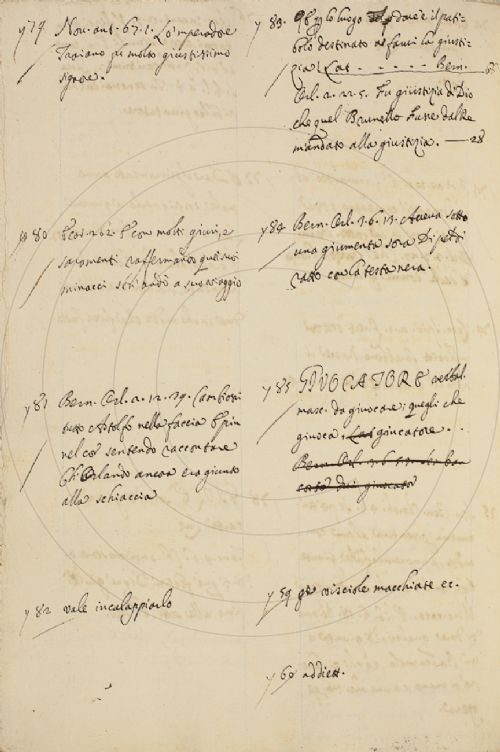 y 79 Nov. ant. 67. 1. Lo 'mperadore
Traiano fu molto giustissimo
signore.
y 80 con molti giuri, e
sargmenti raffermando questi suoi
minacci
y 81 Bern. Orl. 2. 12. 29. Cambiossi
tutto Astolfo nella faccia E fin
nel cor sentendo raccontare
Ch' Orlando ancora era giunto
alla schiaccia
y 82 vale incalappiarlo
y 83. luogo dove è il pati-
bolo destinato a farvi la giusti-
zia. Lat. . . . . . Bern.
Orl. 2. 22. 5. Fu giustizia di Dio
che quel Brunello Fusse dal Re
mandato alla giustizia. — 28
y 84 Bern. Orl. 3. 6. 13. Aveva sotto
una giumenta sora Di peli
ratto con la testa nera.
y 85 GIVOCATORE verbal.
masc. da giuocare; quegli che
giuoca. Lat. giucatore. . .
Bern. Orl. 3. 6.
giuocato
y 59 visciole macchiate ec.
y 60 addiett.